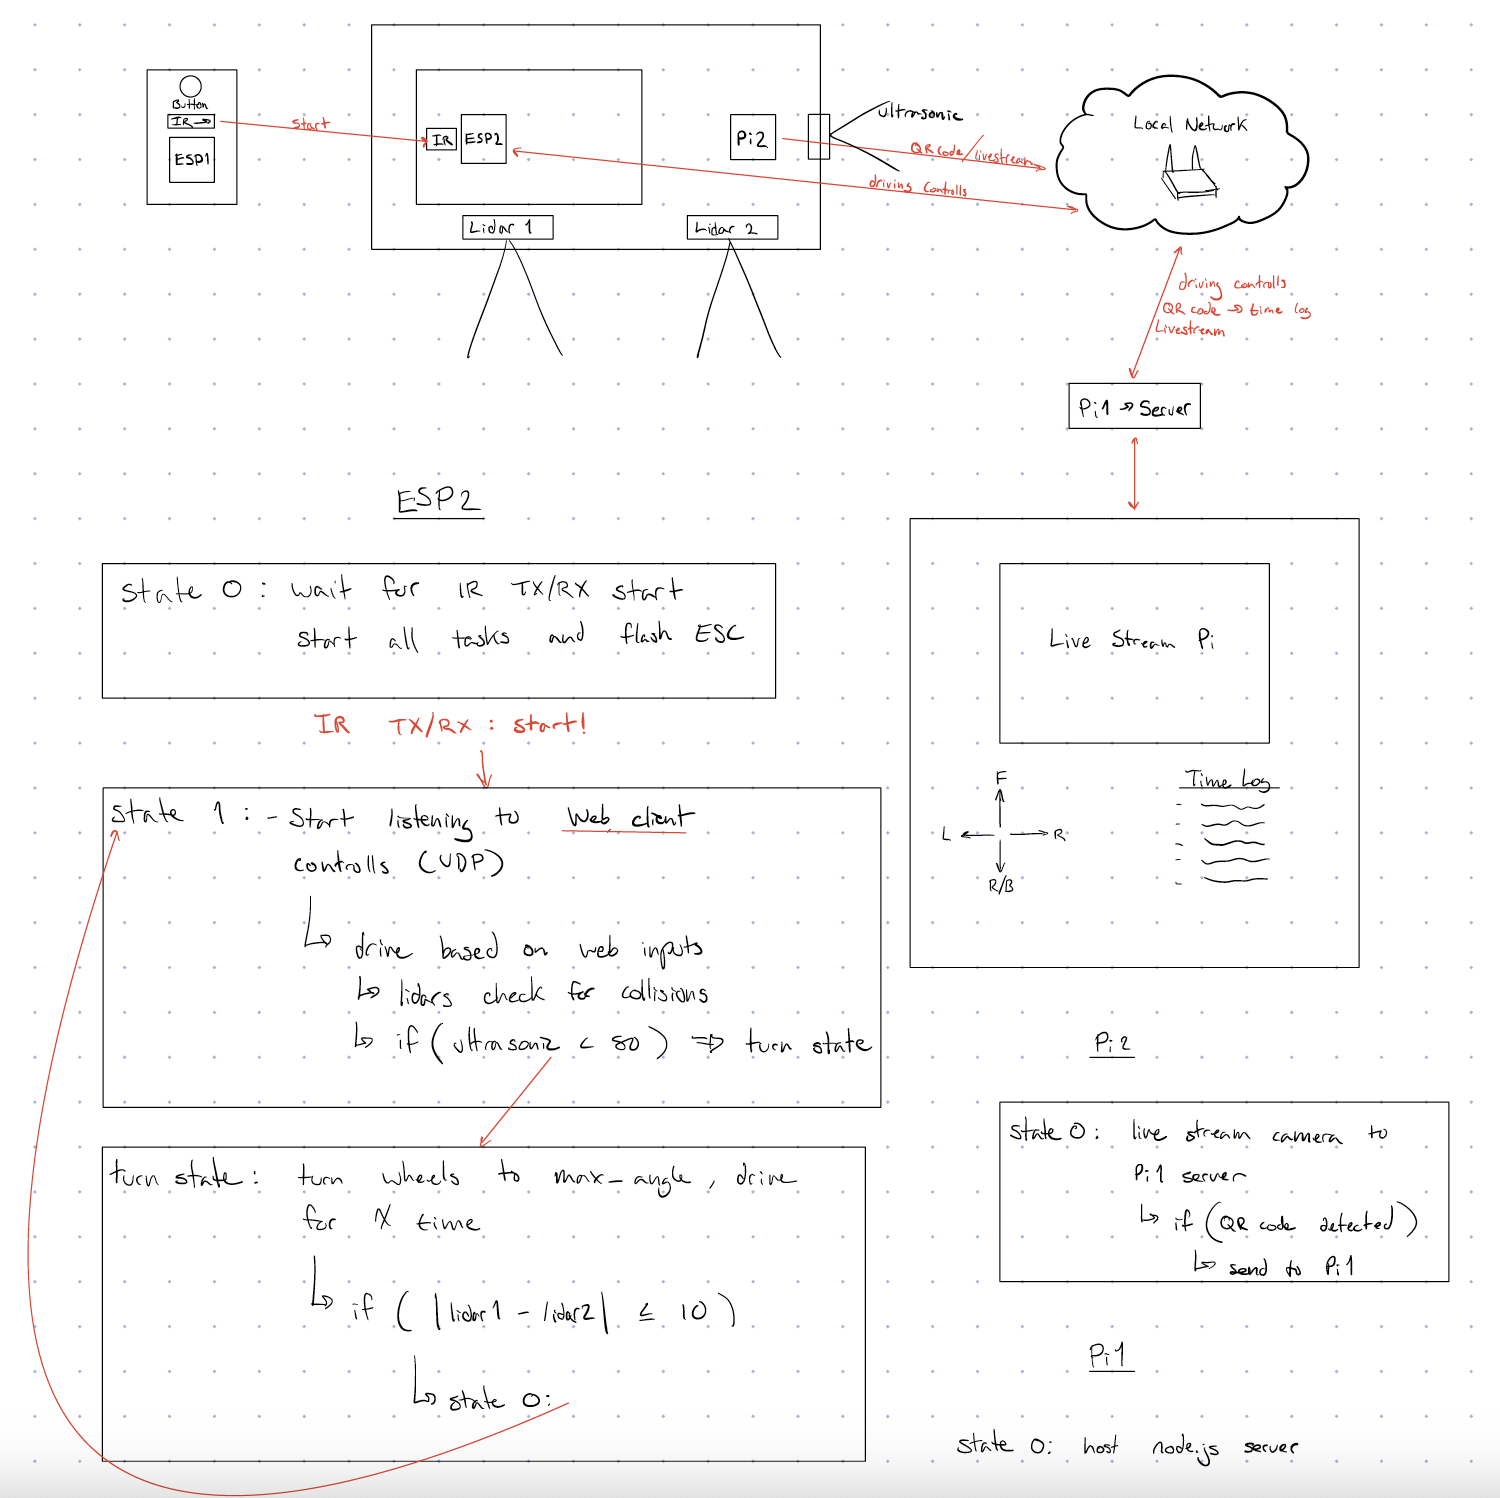 Button
IR →
ESP1
start
IR
ESP2
Pi2
ultrasonic
QR code/livestream
driving controlls
Local Network
Lidar 1
Lidar 2
driving controlls
QR code → time log
Livestream
Pi1 → Server
ESP2
state 0: wait for IR TX/RX start
start all tasks and flash ESC
IR TX/RX: start!
state 1: - Start listening to Web client
controlls (UDP)
↳ drive based on web inputs
↳ lidars check for collisions
↳ if (ultrasonic < 80) ⇒ turn state
turn state: turn wheels to max_angle, drive
for X time
↳ if ( |lidar1 - lidar2| ≤ 10 )
↳ state 0:
Live Stream Pi
F
L
R
R/B
Time Log
Pi2
state 0: live stream camera to
Pi1 server
↳ if (QR code detected)
↳ send to Pi1
Pi1
state 0: host node.js server